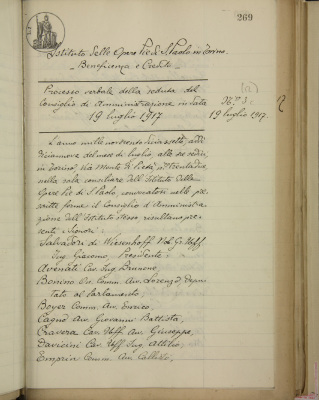 269
Istituto delle Opere Pie di S. Paolo in Torino.
- Beneficenza e Credito -
Processo verbale della seduta del
Consiglio di Amministrazione in data
19 luglio 1917
N.° 3
19 luglio 1917.
L'anno mille novecento diciassette, addì
diciannove del mese di luglio, alle ore sedici,
in Torino, via Monte di Pietà, n.° trentadue
nella sala consolare dell'Istituto delle
Opere Pie di S. Paolo, convocatosi nelle pre-
scritte forme il Consiglio d'Amministra-
zione dell'Istituto stesso risultano pre-
senti i signori:
Salvadori di Wiesenhoff Nob. Gr. Uff.
Ing. Giacomo, Presidente;
Avenati Cav. Ing.
Bonino Avv. Comm. Avv. Lorenzo, Depu-
tato al Parlamento;
Boyer Comm. Avv. Enrico.
Cagno Avv. Giovanni Battista,
Cravera Cav. Uff. Avv. Giuseppe,
Davicini Cav. Uff. Ing. Attilio,
Emprin Comm. Avv. Callisto.